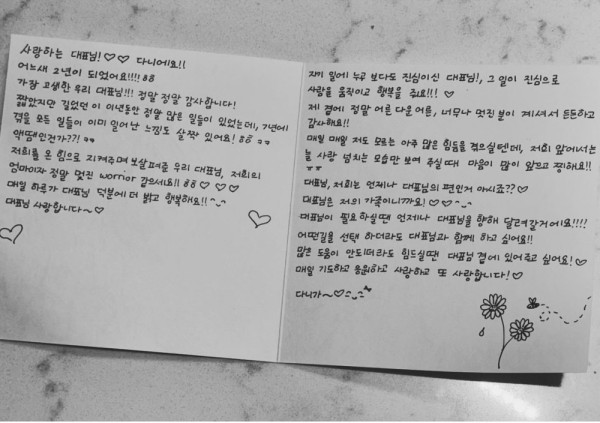 사랑하는 대표님!♡♡ 다니에요!!
어느새 2년이 되었어요!!!! 88
가장 고생한 우리 대표님!!! 정말 정말 감사합니다!
짧았지만 길었던 이 이년동안 정말 많은 일들이 있었는데, 7년에
겪을 모든 일들이 이미 일어난 느낌도 살짝 있어요! 88
액땜인건가??!
저희를 온 힘으로 지켜주며 보살펴준 우리 대표님, 저희의
엄마이자 정말 멋진 worrior 같으세요!! 88 ♡ ♡ ♡
매일 하루가 대표님 덕분에 더 밝고 행복해요!! ^_^
대표님 사랑합니다~♡
자기 일에 누구 보다도 진심이신 대표님!, 그 일이 진심으로
사람을 움직이고 행복을 줘요!!!
제 곁에 정말 어른 다운 어른, 너무나 멋진 분이 계셔서 든든하고
감사해요!!
매일 매일 저도 모르는 아주 많은 힘듦을 겪으실텐데, 저희 앞에서는
늘 사랑 넘치는 모습만 보여 주실때 마음이 많이 아프고 찡해요!!
ㅠㅠ
대표님, 저희는 언제나 대표님의 편인거 아시죠??♡
대표님은 저의 가족이니까요!♡♡ ^_^
대표님이 필요하실땐 언제나 대표님을 향해 달려갈거에요!!!!
어떤길을 선택 하더라도 대표님과 함께 하고 싶어요!!
많은 도움이 안되더라도 힘드실땐 대표님 곁에 있어주고 싶어요!♡
매일 기도하고 응원하고 사랑하고 또 사랑합니다!♡
다니가~♡^_^